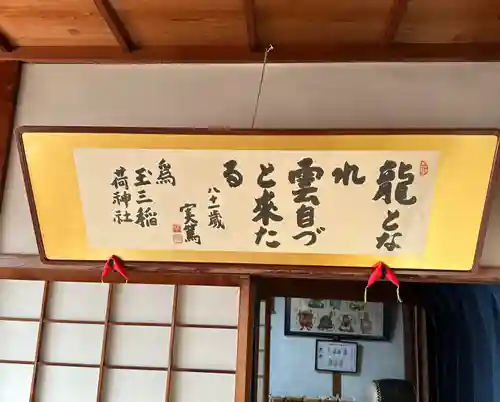 龍とな
れ
雲自づ
と来た
る
八十一歳
実篤
為
玉三稲
荷神社